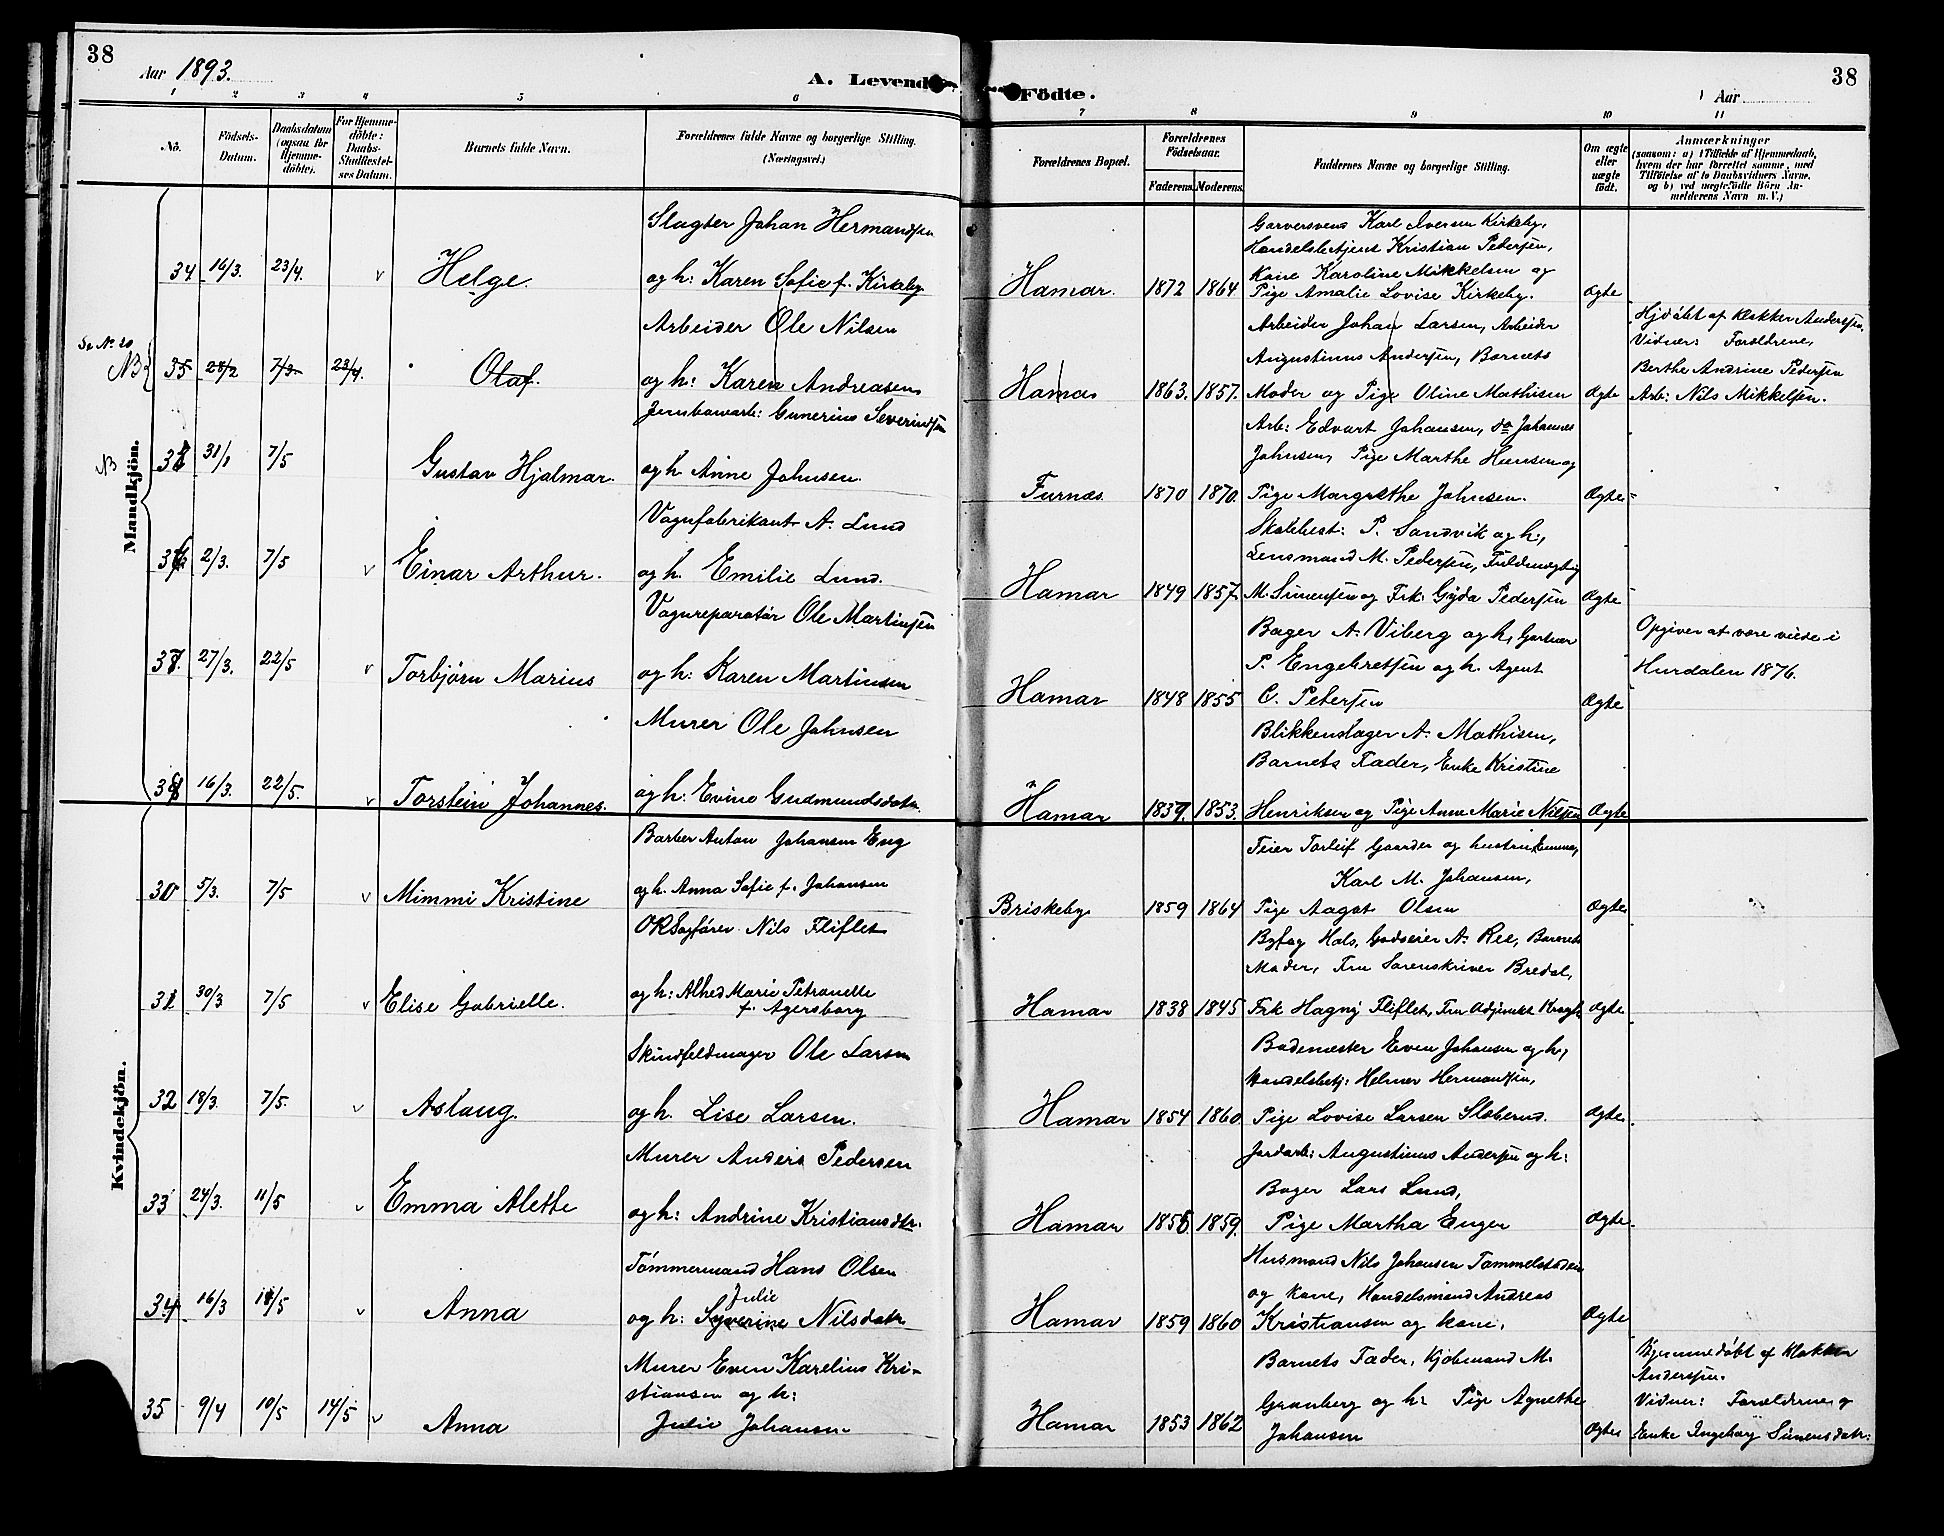 38
Aar 1893.
A. Levende
Födte.
38
Aar
1 2 3 4 5 6 7 8 9 10 11
No.
Födsels-Datum.
Daabsdatum (ogsaa for Hjemme-döbte).
For Hjemme-döbte: Daabs-Stadfæstel-ses Datum.
Barnets fulde Navn.
Forældrenes fulde Navne og borgerlige Stilling.
(Næringsvei.)
Forældrenes Bopæl.
Forældrenes Födselsaar.
Faderens.
Moderens.
Faddernes Navne og borgerlige Stilling.
Om ægte eller uægte födt.
Anmærkninger
(saasom: a) i Tilfælde af Hjemmedaab, hvem der har forrettet samme, med Tilföielse af to Daabsvidners Navne, og b) ved uægtefödte Börn An-melderens Navn m. V.)
Mandkjön.
34 16/3. 23/4. v Helge.
Slagter Johan Hermandsen
og h: Karen Sofie f. Kirkeby
Hamar. 1872 1864
Garversvend Karl Iversen Kirkeby,
Handelsbetjent Kristian Pedersen,
Kone Karoline Mikkelsen og
Pige Amalie Lovise Kirkeby.
Ægte
Se No. 20
NB 35 28/2 7/3 23/4. Olaf.
Arbeider Ole Nilsen
og h: Karen Andreasen
Hamar 1863. 1857.
Arbeider Johan Larsen, Arbeider
Augustinus Andersen, Barnets
Moder og Pige Oline Mathisen
Ægte
Hjdöbt af Klokker Andersen,
Vidner: Forældrene,
Berthe Andrine Pedersen
Arb: Nils Mikkelsen.
NB 31/1 7/5 Gustav Hjalmar.
Jernbanearb: Gunerius Severindsen
og h. Anne Johnsen.
Furnæs. 1870 1870.
Arb: Edvart Johansen, do Johannes
Johnsen, Pige Marthe Hansen og
Pige Margrethe Johnsen.
Ægte
36 2/3. 7/5 v Einar Arthur.
Vognfabrikant A. Lund
og h. Emilie Lund.
Hamar 1849 1857
Skolebest: P. Sandvik og h:,
Lensmand M. Pedersen, Fuldmægtig
M. Simensen og Frk. Gyda Pedersen
Ægte
37. 27/3. 22/5 v Torbjörn Marius
Vognreparatör Ole Martinsen
og h: Karen Martinsen
Hamar 1848 1855
Bager A. Viberg og h, Gartner
P. Engebretsen og h. Agent
C. Petersen
Ægte
Opgiver at være viede i
Hurdalen 1876.
38 16/3. 22/5. v Torstein Johannes.
Murer Ole Johnsen
og h: Evine Gudmundsdatr.
Hamar 1839. 1853.
Blikkenslager A. Mathisen,
Barnets Fader, Enke Kristine
Henriksen og Pige Anne Marie Nilsen
Ægte
Kvindekjön.
30 5/3. 7/5 v Mimmi Kristine
Barber Anton Johansen Eng
og h. Anna Sofie f. Johansen
Briskeby 1859 1864
Feier Torleif Gaarder og hustru Emma,
Karl M. Johansen,
Pige Aagot Olsen
Ægte
31 30/3 7/5 v Elise Gabrielle.
ORSagförer Nils Fliflet
og h: Alhed Marie Petronelle
f. Agersborg
Hamar 1838 1845
Byfog Hals, Godseier A. Ree, Barnets
Moder, Fru Sorenskriver Bredal,
Frk Hagny Fliflet, Fru Adjunkt
Ægte
32 18/3. 7/5. v Aslaug.
Skindfeldmager Ole Larsen
og h. Lise Larsen.
Hamar 1854 1860
Bademester Even Johansen og h,
Handelsbetj: Helmer Hermandsen,
Pige Lovise Larsen
Ægte.
33 24/3. 11/5 v Emma Alette
Murer Anders Pedersen
og h: Andrine Kristiansdtr.
Hamar 1856. 1859.
Jordarb: Augustinus Andersen og h:
Bager Lars Lund,
Pige Martha Enger
Ægte.
34 16/3 11/5 v Anna
Tömmermand Hans Olsen
Julie
og h: Syverine Nilsdatr
Hamar 1859 1860
Husmand Nils Johansen Tommelstaden
og kone, Handelsmand Andreas
Kristiansen og kone.
Ægte
35 9/4 10/5 14/5 v Anna
Murer Even Karelius Kri-
stiansen og h:
Julie Johansen
Hamar 1853 1862
Barnets Fader, Kjöbmand M.
Granberg og h: Pige Agnethe
Johansen
Ægte
Hjemmedöbt af Klokker
Andersen.
Vidner: Forældrene og
Enke Ingeborg Simensdatr: